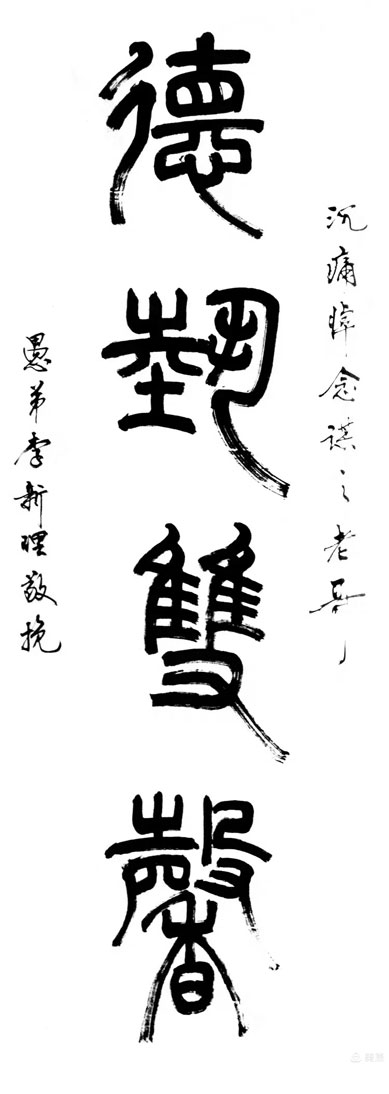 沉痛悼念谋之老哥
德埶雙馨
愚弟李新理敬挽